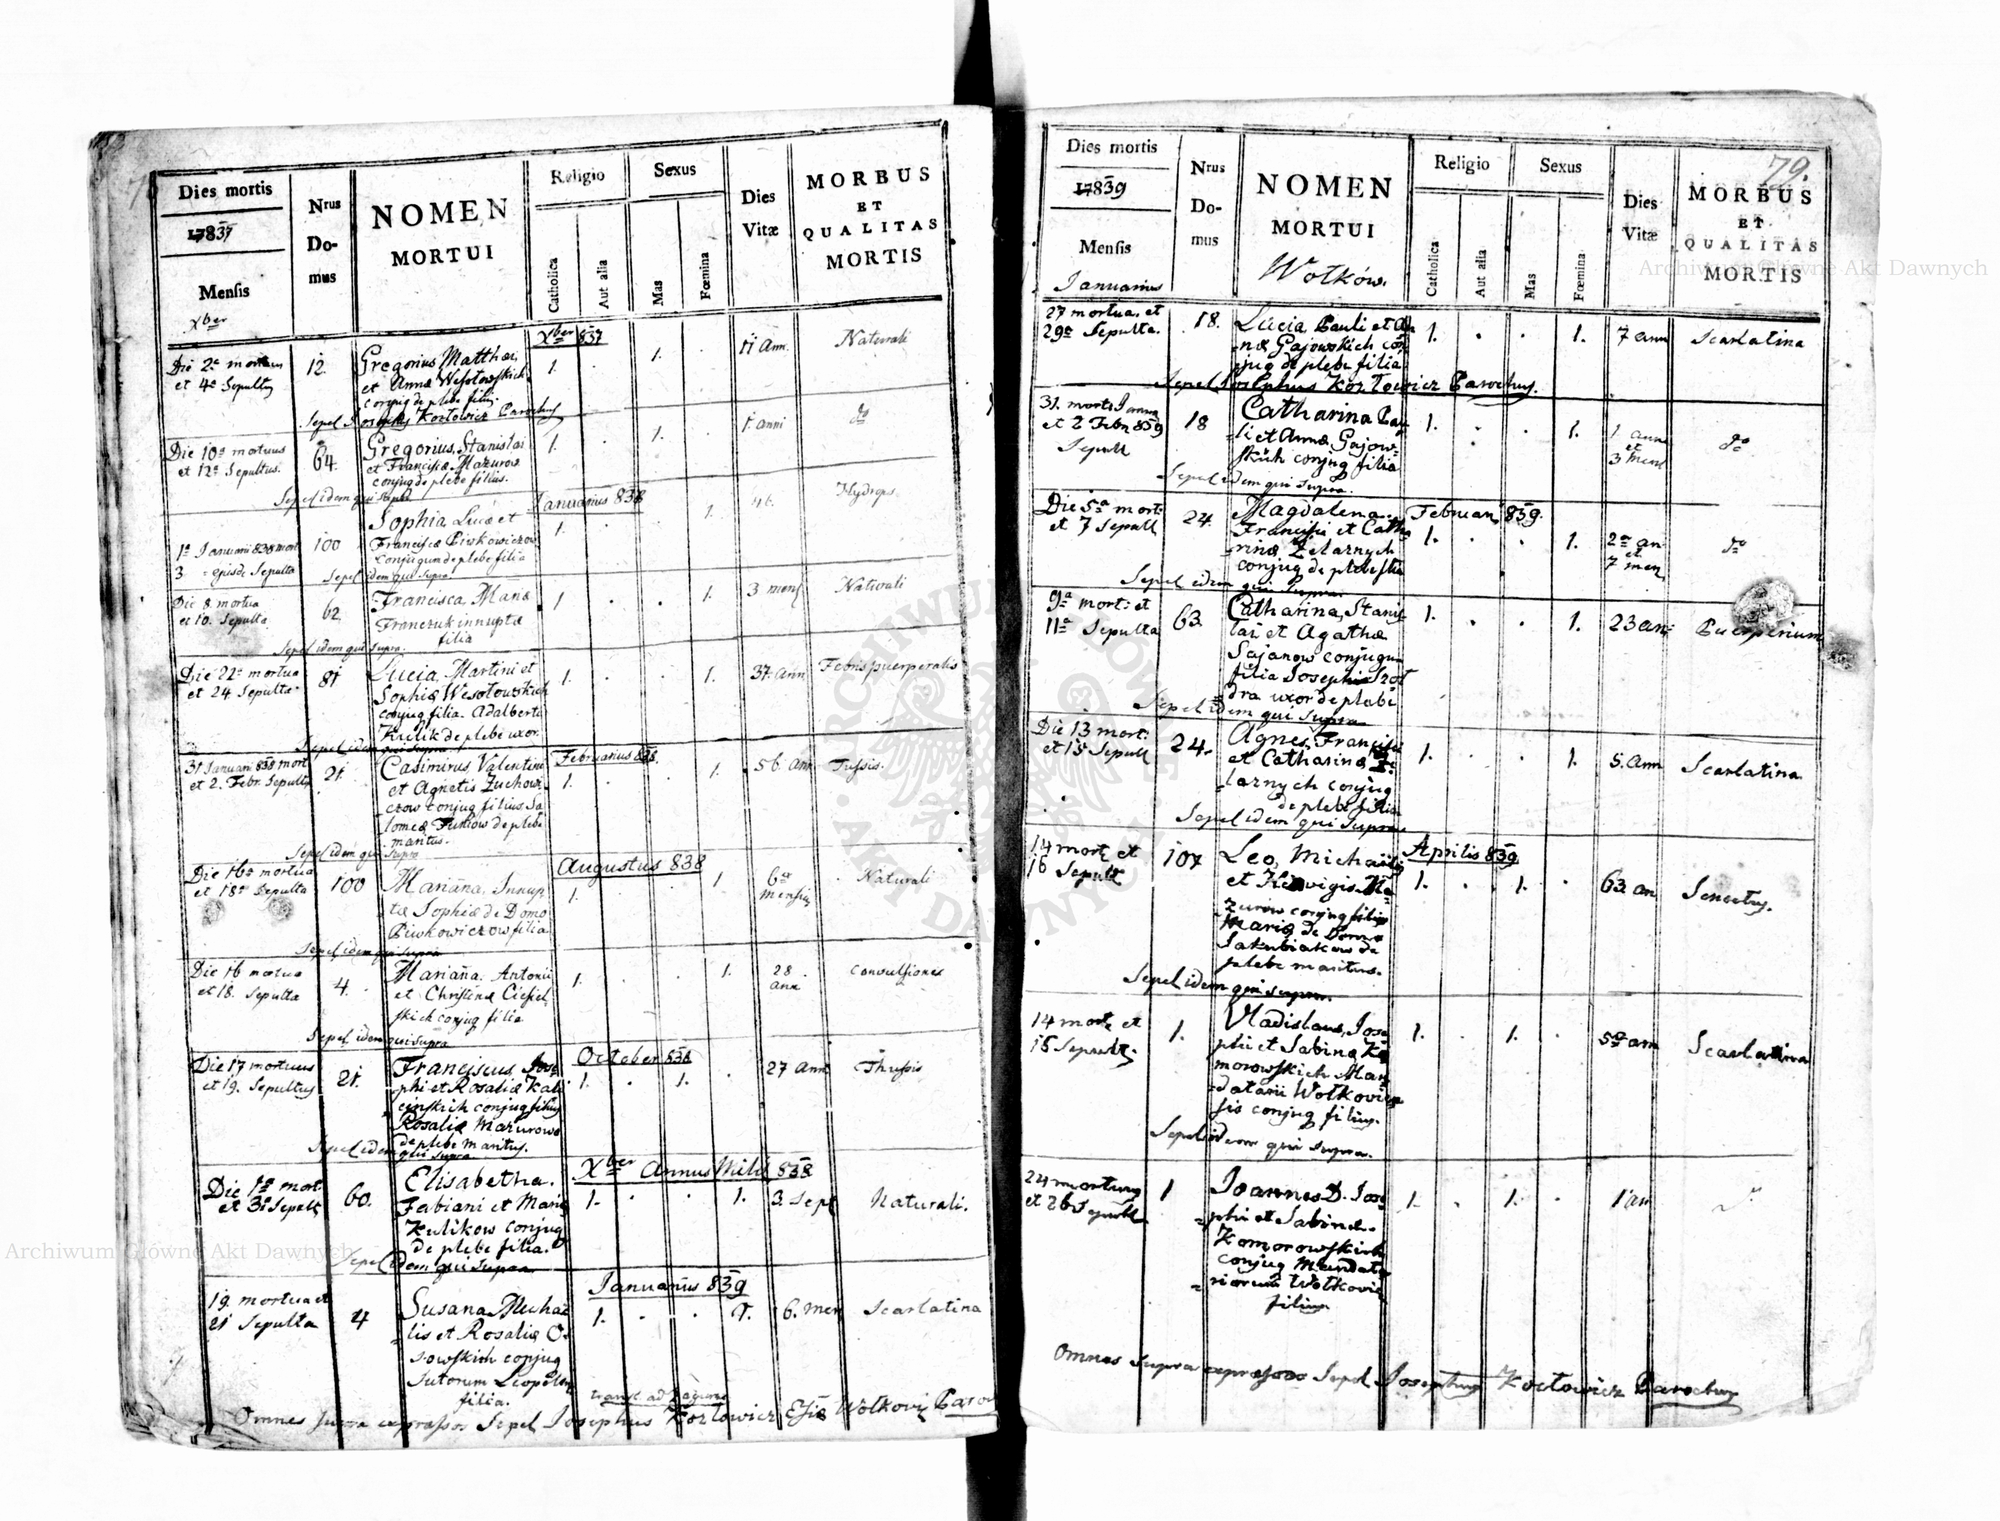 Dies mortis
17837
Mensis
Xber
Nrus
Do-
mus
NOMEN
MORTUI
Religio
Catholica
Aut alia
Sexus
Mas
Fœmina
Dies
Vitæ
MORBUS
ET
QUALITAS
MORTIS
Xber 837
Die 2a mortuus
et 4a Sepultus
12.
Gregorius Matthæi
et Annæ Wesołowskich
conjug de plebe filius
1. 1. 11 Ann. Naturali
Sepel Josephus Kozłowicz Parochus
Die 10a mortuus
et 12a Sepultus.
64.
Gregorius, Stanislai
et Franciscæ Mazurow
conjug de plebe filius.
1. 1. 1 anni do
Sepel idem qui supra
Januarius 838
1a Januarii 838 mort
3 ejusde Sepulta
100
Sophia Lucæ et
Franciscæ Piwkowiczow
conjugum de plebe filia
1. 1. 46. Hydrops.
Sepel idem qui supra
Die 8. mortua
et 10. Sepulta
62.
Francisca, Mariæ
Franczuk innuptæ
filia
1 1. 3 mens Naturali
Sepel idem qui supra.
Die 22a mortua
et 24 Sepulta
81
Lucia, Martini et
Sophiæ Wesołowskich
conjug filia. Adalberti
Kulik de plebe uxor.
1. 1. 37. Ann Febris puerperalis
Sepel idem qui supra
Februarius 838.
31 Januarii 838 mort
et 2. Febr. Sepultus
21.
Casimirus, Valentini
et Agnetis Zuchowi
czow conjug filius. Sa
lomeæ Funiow de plebe
maritus.
1. 1. 56. Ann Tussis.
Sepel idem qui supra
Augustus 838
Die 16a mortua
et 18a Sepulta
100
Mariana, Innup-
tæ Sophiæ de Domo
Piwkowiczow filia
1. 1. 6a mensis Naturali
Sepel idem qui supra
Die 16 mortua
et 18. Sepulta
4.
Mariana, Antonii
et Christinæ Ciesiel
skich conjug filia
1. 1. 28 ann Convulsiones
Sepel idem qui supra
October 838
Die 17 mortuus
et 19. Sepultus
21.
Franciscus, Jose
phi et Rosaliæ Kali
cinskich conjug filius
Rosaliæ Mazurowo
de plebe maritus.
1. 1. 27 Ann Thussis
Sepel idem qui supra
Xber Annus Mild 838
Die 1a mort
et 3a Sepult
60.
Elisabetha.
Fabiani et Mariæ
Kulikow conjug
de plebe filia.
1. 1. 3. Sept Naturali.
Sepel idem qui supra
Januarius 839
19. mortua et
21 Sepulta
4
Susana, Micha
lis et Rosaliæ O-
sowskich conjug
Sutorum Leopolien
filia.
1. 1. 6. Men Scarlatina
Omnes supra expressos Sepel Josephus Kozłowicz Esiæ Wolkovi Paroch
79.
Dies mortis
17839
Mensis
Januarius
Nrus
Do-
mus
NOMEN
MORTUI
Wołków.
Religio
Catholica
Aut alia
Sexus
Mas
Fœmina
Dies
Vitæ
MORBUS
ET
QUALITAS
MORTIS
27 mortua. et
29a Sepulta.
18.
Lucia, Pauli et An
næ Gajowskich con
jug de plebe filia
1. 1. 7 ann Scarlatina
Sepel Josephus Kozłowicz Parochus.
31. morta Janua
et 2 Febr 839
Sepult
18
Catharina Pau
li et Annæ Gajow-
skich conjug filia
1. 1. 1 ann et 3 Mens do
Sepel idem qui supra.
Februari 839.
Die 5a mort
et 7 Sepult
24.
Magdalena.
Francisci et Catha
rinæ Zelaznych
conjug de plebe filia
1. 1. 2a an et 7 men do
Sepel idem qui supra
9a mort: et
11a Sepulta
63.
Catharina, Stanis
lai et Agathæ
Sajanow conjugum
filia Josephi Szot
dra uxor de plebe
1. 1. 23 an: Puerperium
Sepel idem qui supra
Die 13 mort:
et 15 Sepult
24.
Agnes, Francisci
et Catharinæ Ze
laznych conjug
de plebe filia
1. 1. 5. Ann Scarlatina
Sepel idem qui supra
Aprilis 839
14 mort et
16 Sepult
107
Leo, Michaelis
et Hedwigis Ma
zurow conjug filius
Mariæ de Domo
Jakubiakow de
plebe maritus.
1. 1. 63. an Senectus.
Sepel idem qui supra.
14 mort et
15 Sepult.
1.
Vladislaus, Jose
phi et Sabinæ Ko
morowskich Man
datarii Wolkovien
sis conjug filius.
1. 1. 5a ann Scarlatina
Sepel idem qui supra.
24 mortuus
et 26 Sepult
1
Joannes D. Jose
phi et Sabinæ.
Komorowskich
conjug Mandata
riorum Wolkovie
filius
1. 1. 1 an
Omnes supra expressos Sepel Josephus Kozłowicz Parochus
Archiwum Główne Akt Dawnych
Archiwum Główne Akt Dawnych
ARCHIWUM GŁÓWNE AKT DAWNYCH